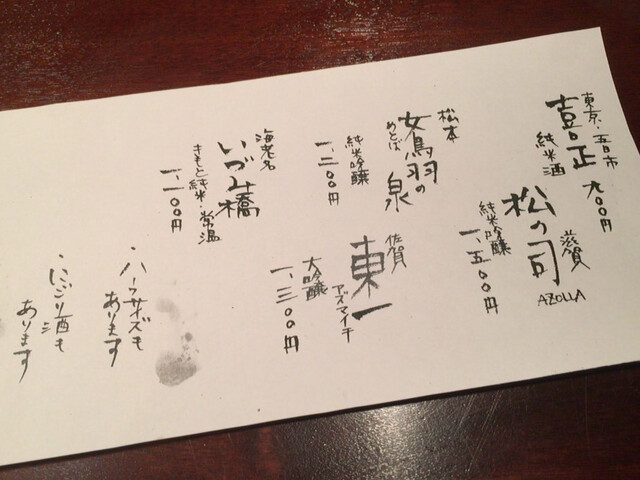 東京・五日市
喜正
純米酒
九〇〇円
滋賀
松の司
AZOLLA
純米吟醸
一、五〇〇円
松本
女鳥羽の泉
めとば
純米吟醸
一、二〇〇円
佐賀
東一
アズマイチ
大吟醸
一、三〇〇円
海老名
いづみ橋
きもと純米・常温
一、一〇〇円
・ハーフサイズも
あります
・にごり酒も
あります